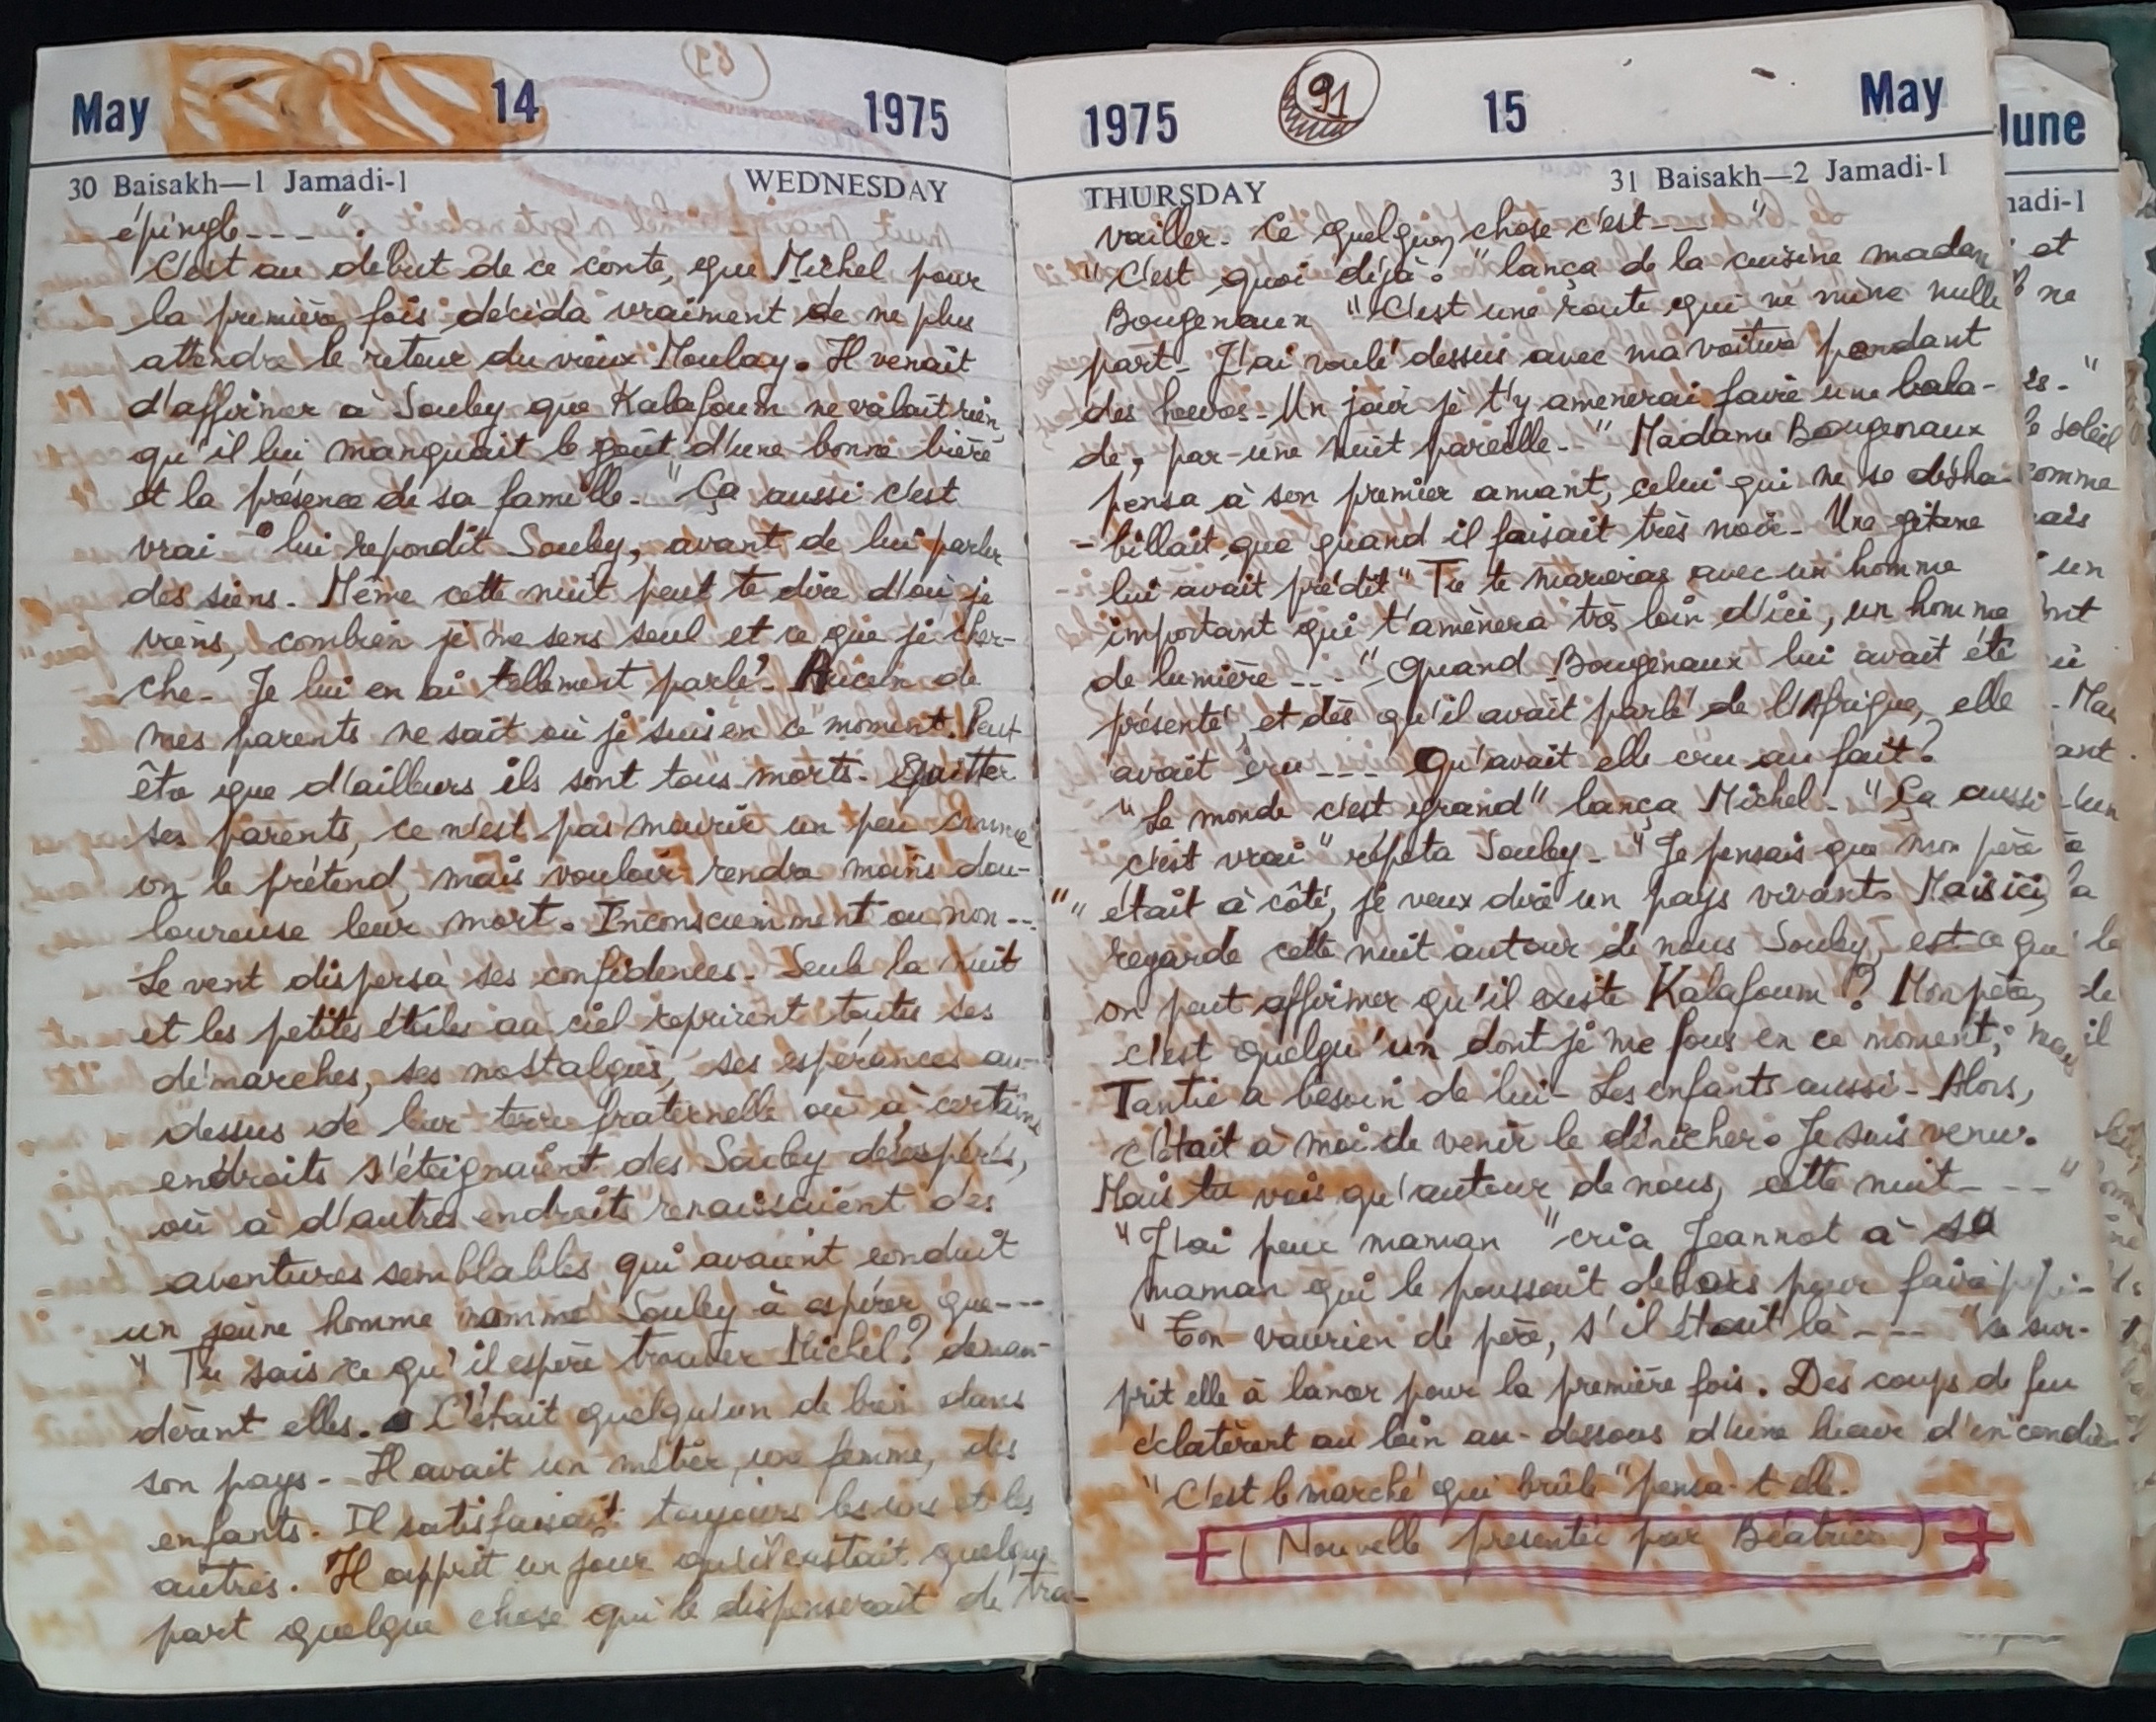 May 14 1975
30 Baisakh—1 Jamadi-1 WEDNESDAY
épingle ---- ".
C'est au debut de ce conte, que Michel pour
la première fois décida vraiment de ne plus
attendre le retour du vieux Moulay. Il venait
d'affirmer à Souley que Kalafoum ne valait rien,
qu'il lui manquait le goût d'une bonne bière
et la présence de sa famille. "Ça aussi c'est
vrai " lui repondit Souley, avant de lui parler
des siens. Même cette nuit peut te dire d'où je
viens, combien je me sens seul et ce que je cher-
che. Je lui en ai tellement parlé. Aucun de
mes parents ne sait où je suis en ce moment. Peut
être que d'ailleurs ils sont tous morts. Quitter
ses parents, ce n'est pas mourir un peu comme
on le prétend, mais vouloir rendre moins dou-
loureuse leur mort. Inconsciemment ou non --.
Le vent dispersa ses confidences. Seule la nuit
et les petites étoiles au ciel reprirent toutes ses
démarches, ses nostalgies, ses espérances au-
dessus de leur terre fraternelle où à certains
endroits s'éteignaient des Souley désespérés,
où à d'autres endroits renaissaient des
aventures semblables qui avaient conduit
un jeune homme nommé Souley à espérer que ---
" Tu sais ce qu'il espère trouver Michel? deman-
dèrent elles. C'était quelqu'un de bien dans
son pays. Il avait un métier, une femme, des
enfants. Il satisfaisait toujours les uns et les
autres. Il apprit un jour qu'il existait quelque
part quelque chose qui le dispenserait de tra-
1975 91 15 May
THURSDAY 31 Baisakh—2 Jamadi-1
vailler. Ce quelque chose c'est --- "
"C'est quoi déjà? " lança de la cuisine madame
Bougenaux "C'est une route qui ne mène nulle
part. J'ai roulé dessus avec ma voiture pendant
des heures. Un jour je t'y amenerai faire une bala-
de, par une nuit pareille. " Madame Bougenaux
pensa à son premier amant, celui qui ne se désha-
-billait que quand il faisait très noir. Une gitane
lui avait prédit " Tu te marieras avec un homme
important qui t'amènera très loin d'ici, un homme
de lumière --- " Quand Bougenaux lui avait été
présenté, et dès qu'il avait parlé de l'Afrique, elle
avait cru --- Qu'avait elle cru au fait?
"Le monde c'est grand" lança Michel. "Ça aussi
c'est vrai" répeta Souley. "Je pensais que mon père
" " était à côté, je veux dire un pays vivant. Mais ici,
regarde cette nuit autour de nous Souley, est ce que
on peut affirmer qu'il existe Kalafoum? Mon père,
c'est quelqu'un dont je me fous en ce moment; mais
Tantie a besoin de lui. Les enfants aussi. Alors,
c'était à moi de venir le dénicher. Je suis venu.
Mais tu vois qu'autour de nous, cette nuit --- "
"J'ai peur maman " cria Jeannot à sa
maman qui le poussait dehors pour faire pipi.
" Ton vaurien de père, s'il était là --- " se sur-
prit elle à lancer pour la première fois. Des coups de feu
éclatèrent au loin au-dessous d'une lueur d'incendie.
"C'est le marché qui brûle" pensa-t-elle.
( Nouvelle presentée par Béatrice )
June